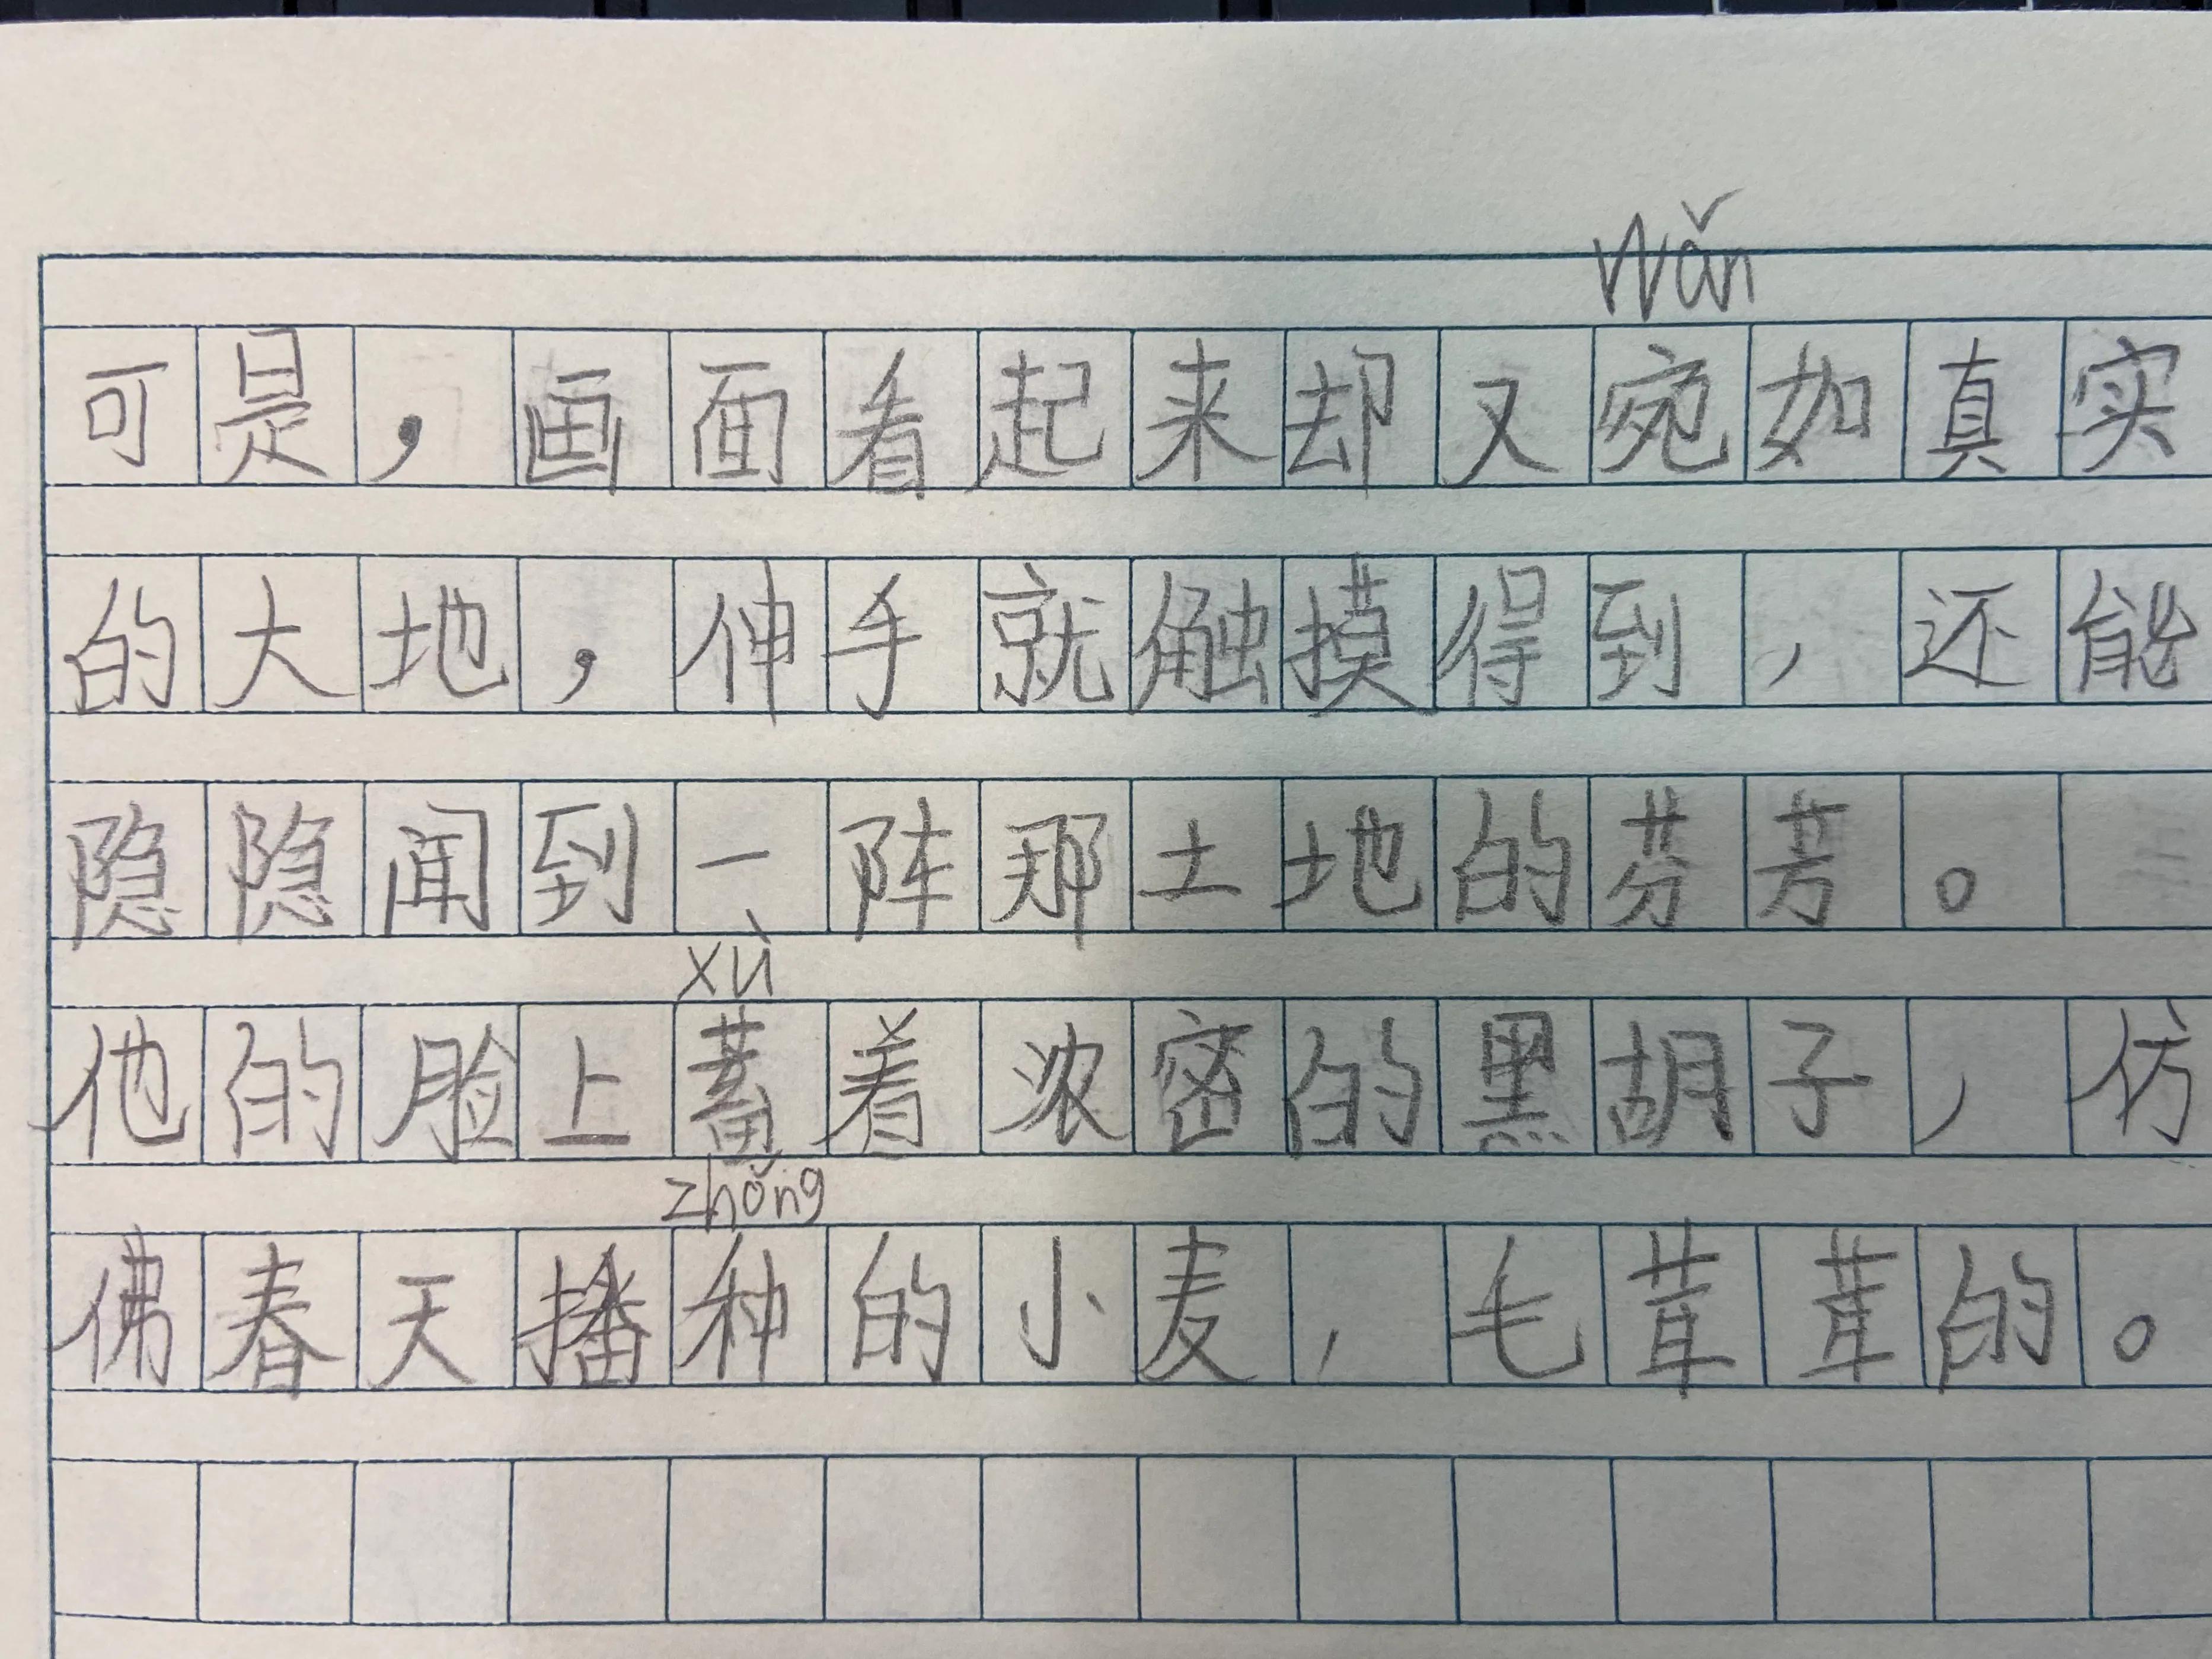 wǎn
可是，画面看起来却又宛如真实
的大地，伸手就触摸得到，还能
隐隐闻到一阵那土地的芬芳。
xù
他的脸上蓄着浓密的黑胡子，仿
zhǒng
佛春天播种的小麦，毛茸茸的。